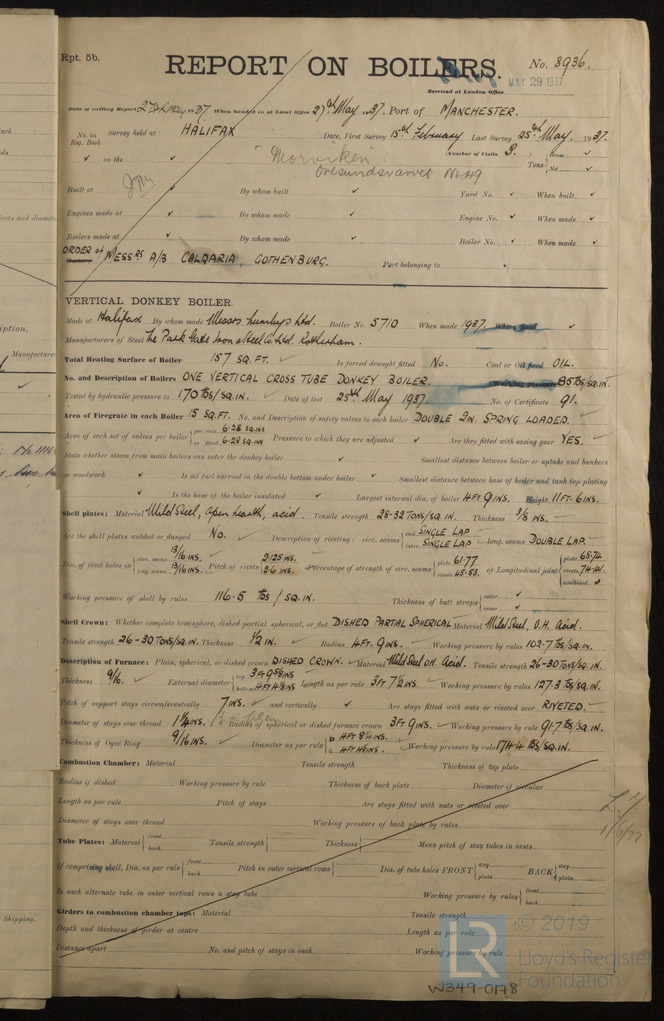 Rpt. 5b.
REPORT ON BOILERS.
No. 8936.
Received at London Office MAY 29 1937
Date of writing Report 27th May 1937. When handed in at Local Office 27th May 1937. Port of MANCHESTER.
No. in Reg. Book Survey held at HALIFAX Date, First Survey 15th February Last Survey 25th May, 1937.
(Number of Visits 3.
on the Tons { Gross Net
Morviken
Oresundsvarvet No 49
Built at By whom built Yard No. When built.
Engines made at By whom made Engine No. When made
Boilers made at By whom made Boiler No. When made
ORDER of MESSRS A/B CALDARIA, GOTHENBURG. Port belonging to
VERTICAL DONKEY BOILER.
Made at Halifax By whom made Messrs Lumbys Ltd. Boiler No. 5710 When made 1937.
Manufacturers of Steel The Park Gate Iron & Steel Co Ltd. Rotherham.
Total Heating Surface of Boiler 157 SQ. FT. Is forced draught fitted No. Coal or Oil fired OIL.
No. and Description of Boilers ONE VERTICAL CROSS TUBE DONKEY BOILER. Working pressure 85 lbs/SQ.IN.
Tested by hydraulic pressure to 170 lbs/SQ.IN. Date of test 25th May 1937. No. of Certificate 91.
Area of Firegrate in each Boiler 15 SQ.FT. No. and Description of safety valves to each boiler DOUBLE 2IN. SPRING LOADED.
Area of each set of valves per boiler { per rule 6.28 SQ.INS as fitted 6.28 SQ.INS Pressure to which they are adjusted Are they fitted with easing gear YES.
State whether steam from main boilers can enter the donkey boiler Smallest distance between boiler or uptake and bunkers
or woodwork Is oil fuel carried in the double bottom under boiler Smallest distance between base of boiler and tank top plating
Is the base of the boiler insulated Largest internal dia. of boiler 4FT 9INS. Height 11FT. 6INS.
Shell plates: Material Mild Steel, Open hearth, acid. Tensile strength 28-32 TONS/SQ.IN. Thickness 3/8 INS.
Are the shell plates welded or flanged No. Description of riveting: circ. seams { end SINGLE LAP inter. SINGLE LAP long. seams DOUBLE LAP.
Dia. of rivet holes in { circ. seams 13/16 INS. long. seams 13/16 INS. Pitch of rivets { 2.125 INS. 2.6 INS. Percentage of strength of circ. seams { plate 61.77 rivets 45.53. of Longitudinal joint { plate 68.74 rivets 74.41. combined
Working pressure of shell by rules 116.5 lbs / SQ. IN. Thickness of butt straps { outer inner
Shell Crown: Whether complete hemisphere, dished partial spherical, or flat DISHED PARTIAL SPHERICAL Material Mild Steel, O.H. Acid.
Tensile strength 26-30 TONS/SQ.IN. Thickness 1/2 IN. Radius 4FT. 9INS. Working pressure by rules 102.7 lbs/SQ.IN.
Description of Furnace: Plain, spherical, or dished crown DISHED CROWN. Material Mild Steel OH. Acid. Tensile strength 26-30 TONS/SQ.IN.
Thickness 9/16. External diameter { top 3FT 9 5/8INS bottom 4FT 4 1/8INS Length as per rule 3FT 7 1/2 INS. Working pressure by rules 127.3 lbs/SQ.IN.
Pitch of support stays circumferentially 7 INS. and vertically Are stays fitted with nuts or riveted over RIVETED.
Diameter of stays over thread 1 1/4 INS. Radius of spherical or dished furnace crown 3FT 9INS. Working pressure by rule 91.7 lbs/SQ.IN.
Thickness of Ogee Ring 9/16 INS. Diameter as per rule { D 4FT 8 1/4 INS. Working pressure by rule 174.4 lbs/SQ.IN.
Combustion Chamber: Material Tensile strength Thickness of top plate
Radius if dished Working pressure by rule Thickness of back plate Diameter if circular
Length as per rule Pitch of stays Are stays fitted with nuts or riveted over
Diameter of stays over thread Working pressure of back plate by rules
Tube Plates: Material { front back Tensile strength { Thickness { Mean pitch of stay tubes in nests
If comprising shell, Dia. as per rule { front back Pitch in outer vertical rows { Dia. of tube holes FRONT { stay plain BACK { stay plain
Is each alternate tube in outer vertical rows a stay tube Working pressure by rules { front back
Girders to combustion chamber tops: Material Tensile strength
Depth and thickness of girder at centre Length as per rule
Distance apart No. and pitch of stays in each Working pressure by rule
Shipping.
© 2019
LR Lloyd's Register
Foundation
W349-0178